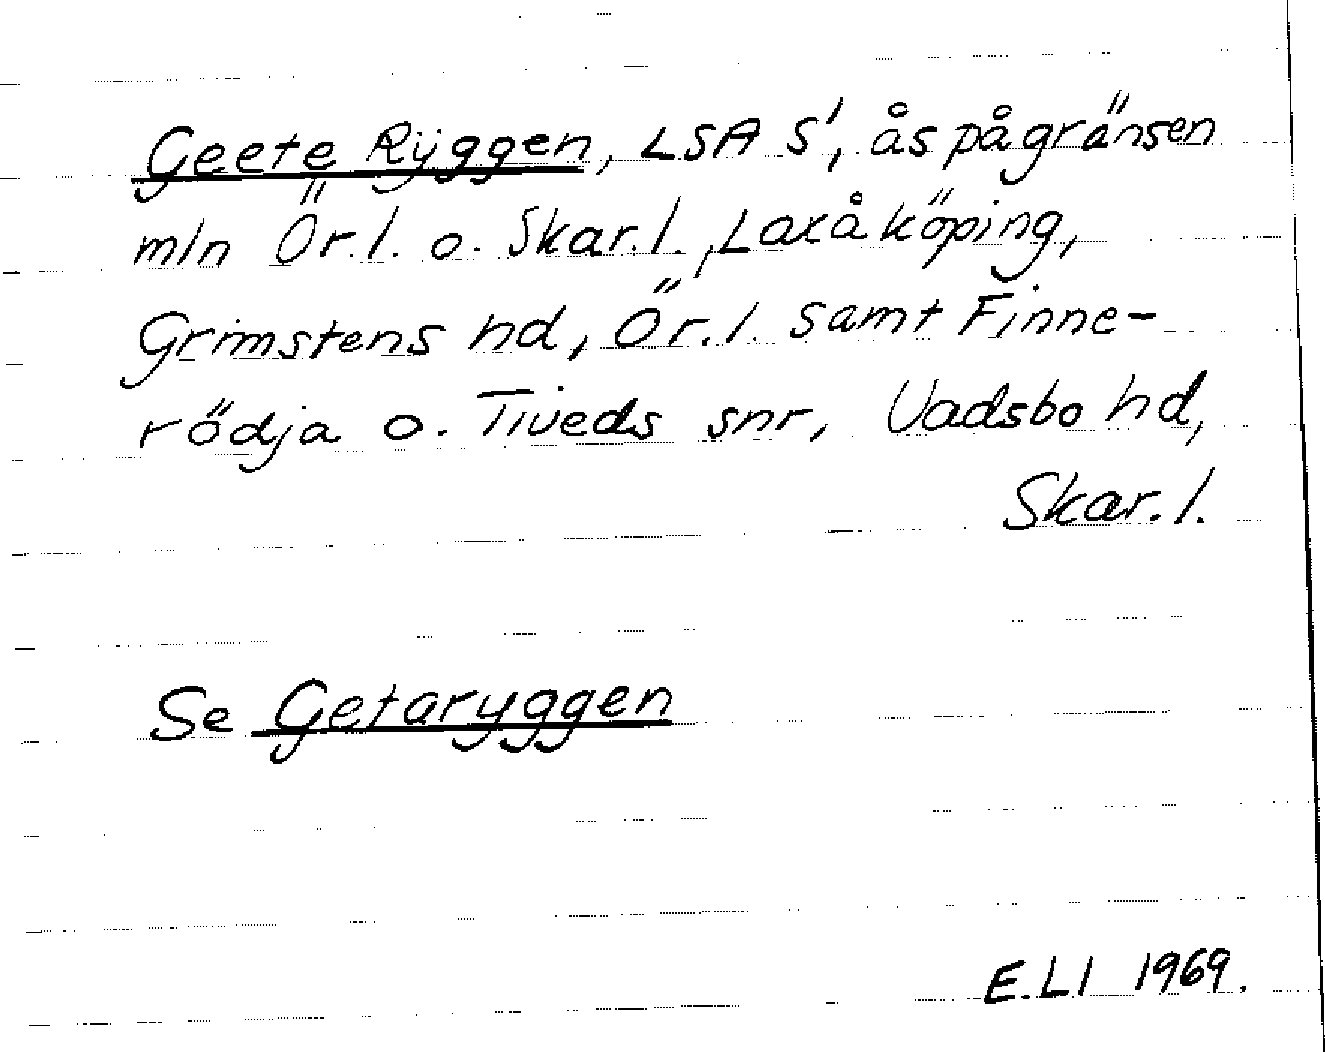 Geete Rÿggen, LSA S', ås på gränsen
mln Ör.l. o. Skar.l., Laxå köping,
Grimstens hd, Ör.l. samt Finne-
rödja o. Tiveds snr, Vadsbo hd,
Skar.l.
Se Getaryggen
E.LI 1969.